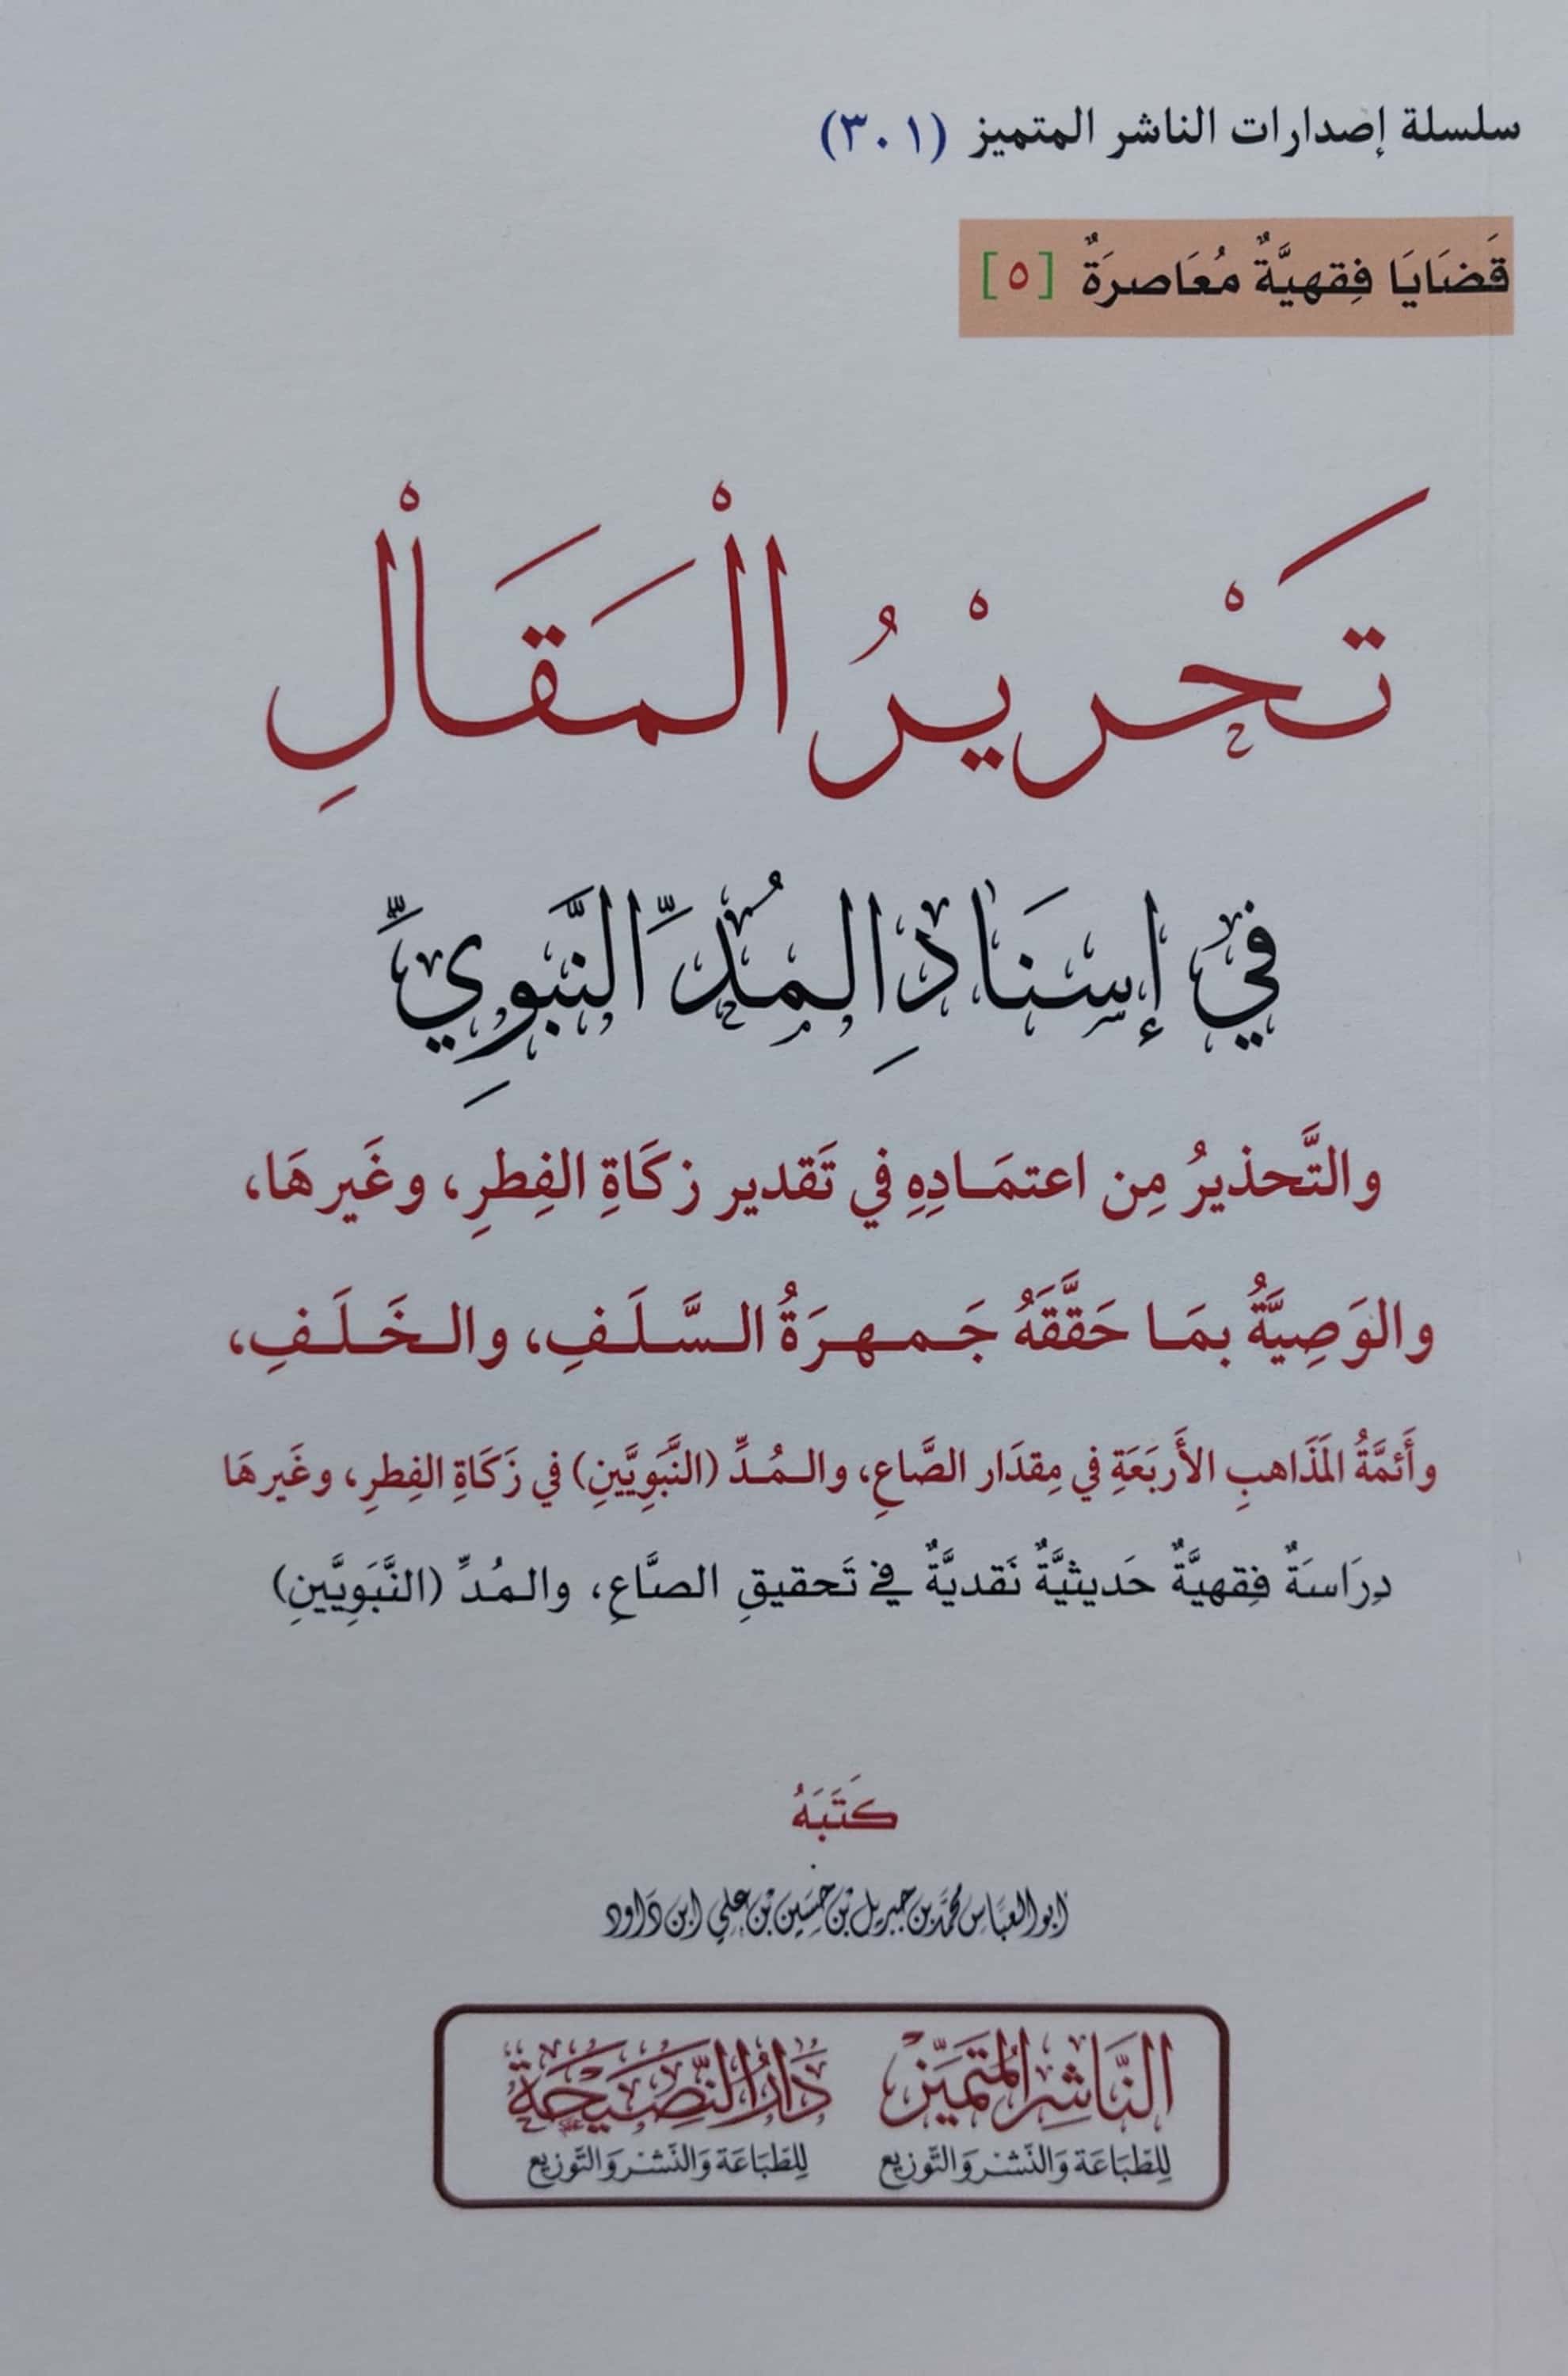 سلسلة إصدارات الناشر المتميز (٣٠١)
قَضَايَا فِقهيَّةٌ مُعَاصرَةٌ [٥]
تَحْرِيْرُ الْمَقَاْلِ
في إِسنَادِ المُدِّ النَّبَوِيِّ
والتَّحذيرُ مِن اعتمَادِهِ في تَقدير زكَاةِ الفِطرِ، وغَيرهَا،
والوَصِيَّةُ بمَا حَقَّقَهُ جَمهرَةُ السَّلَفِ، والخَلَفِ،
وأَئمَّةُ المَذَاهبِ الأَربَعَةِ في مِقدَار الصَّاعِ، والمُدِّ (النَّبَوِيَّينِ) في زَكَاةِ الفِطرِ، وغَيرهَا
دِرَاسَةٌ فِقهيَّةٌ حَديثيَّةٌ نَقديَّةٌ في تَحقيقِ الصَّاعِ، والمُدِّ (النَّبَوِيَّينِ)
كَتَبَهُ
ابو العبَّاس محمَّد بن جبريل بن حسَين بن علي ابن دَاود
النَّاشِر المُتَميِّز دَارُ النَّصِيحَة
لِلطّبَاعَة وَالنّشر وَالتّوزيع لِلطّبَاعَة وَالنّشر وَالتّوزيع